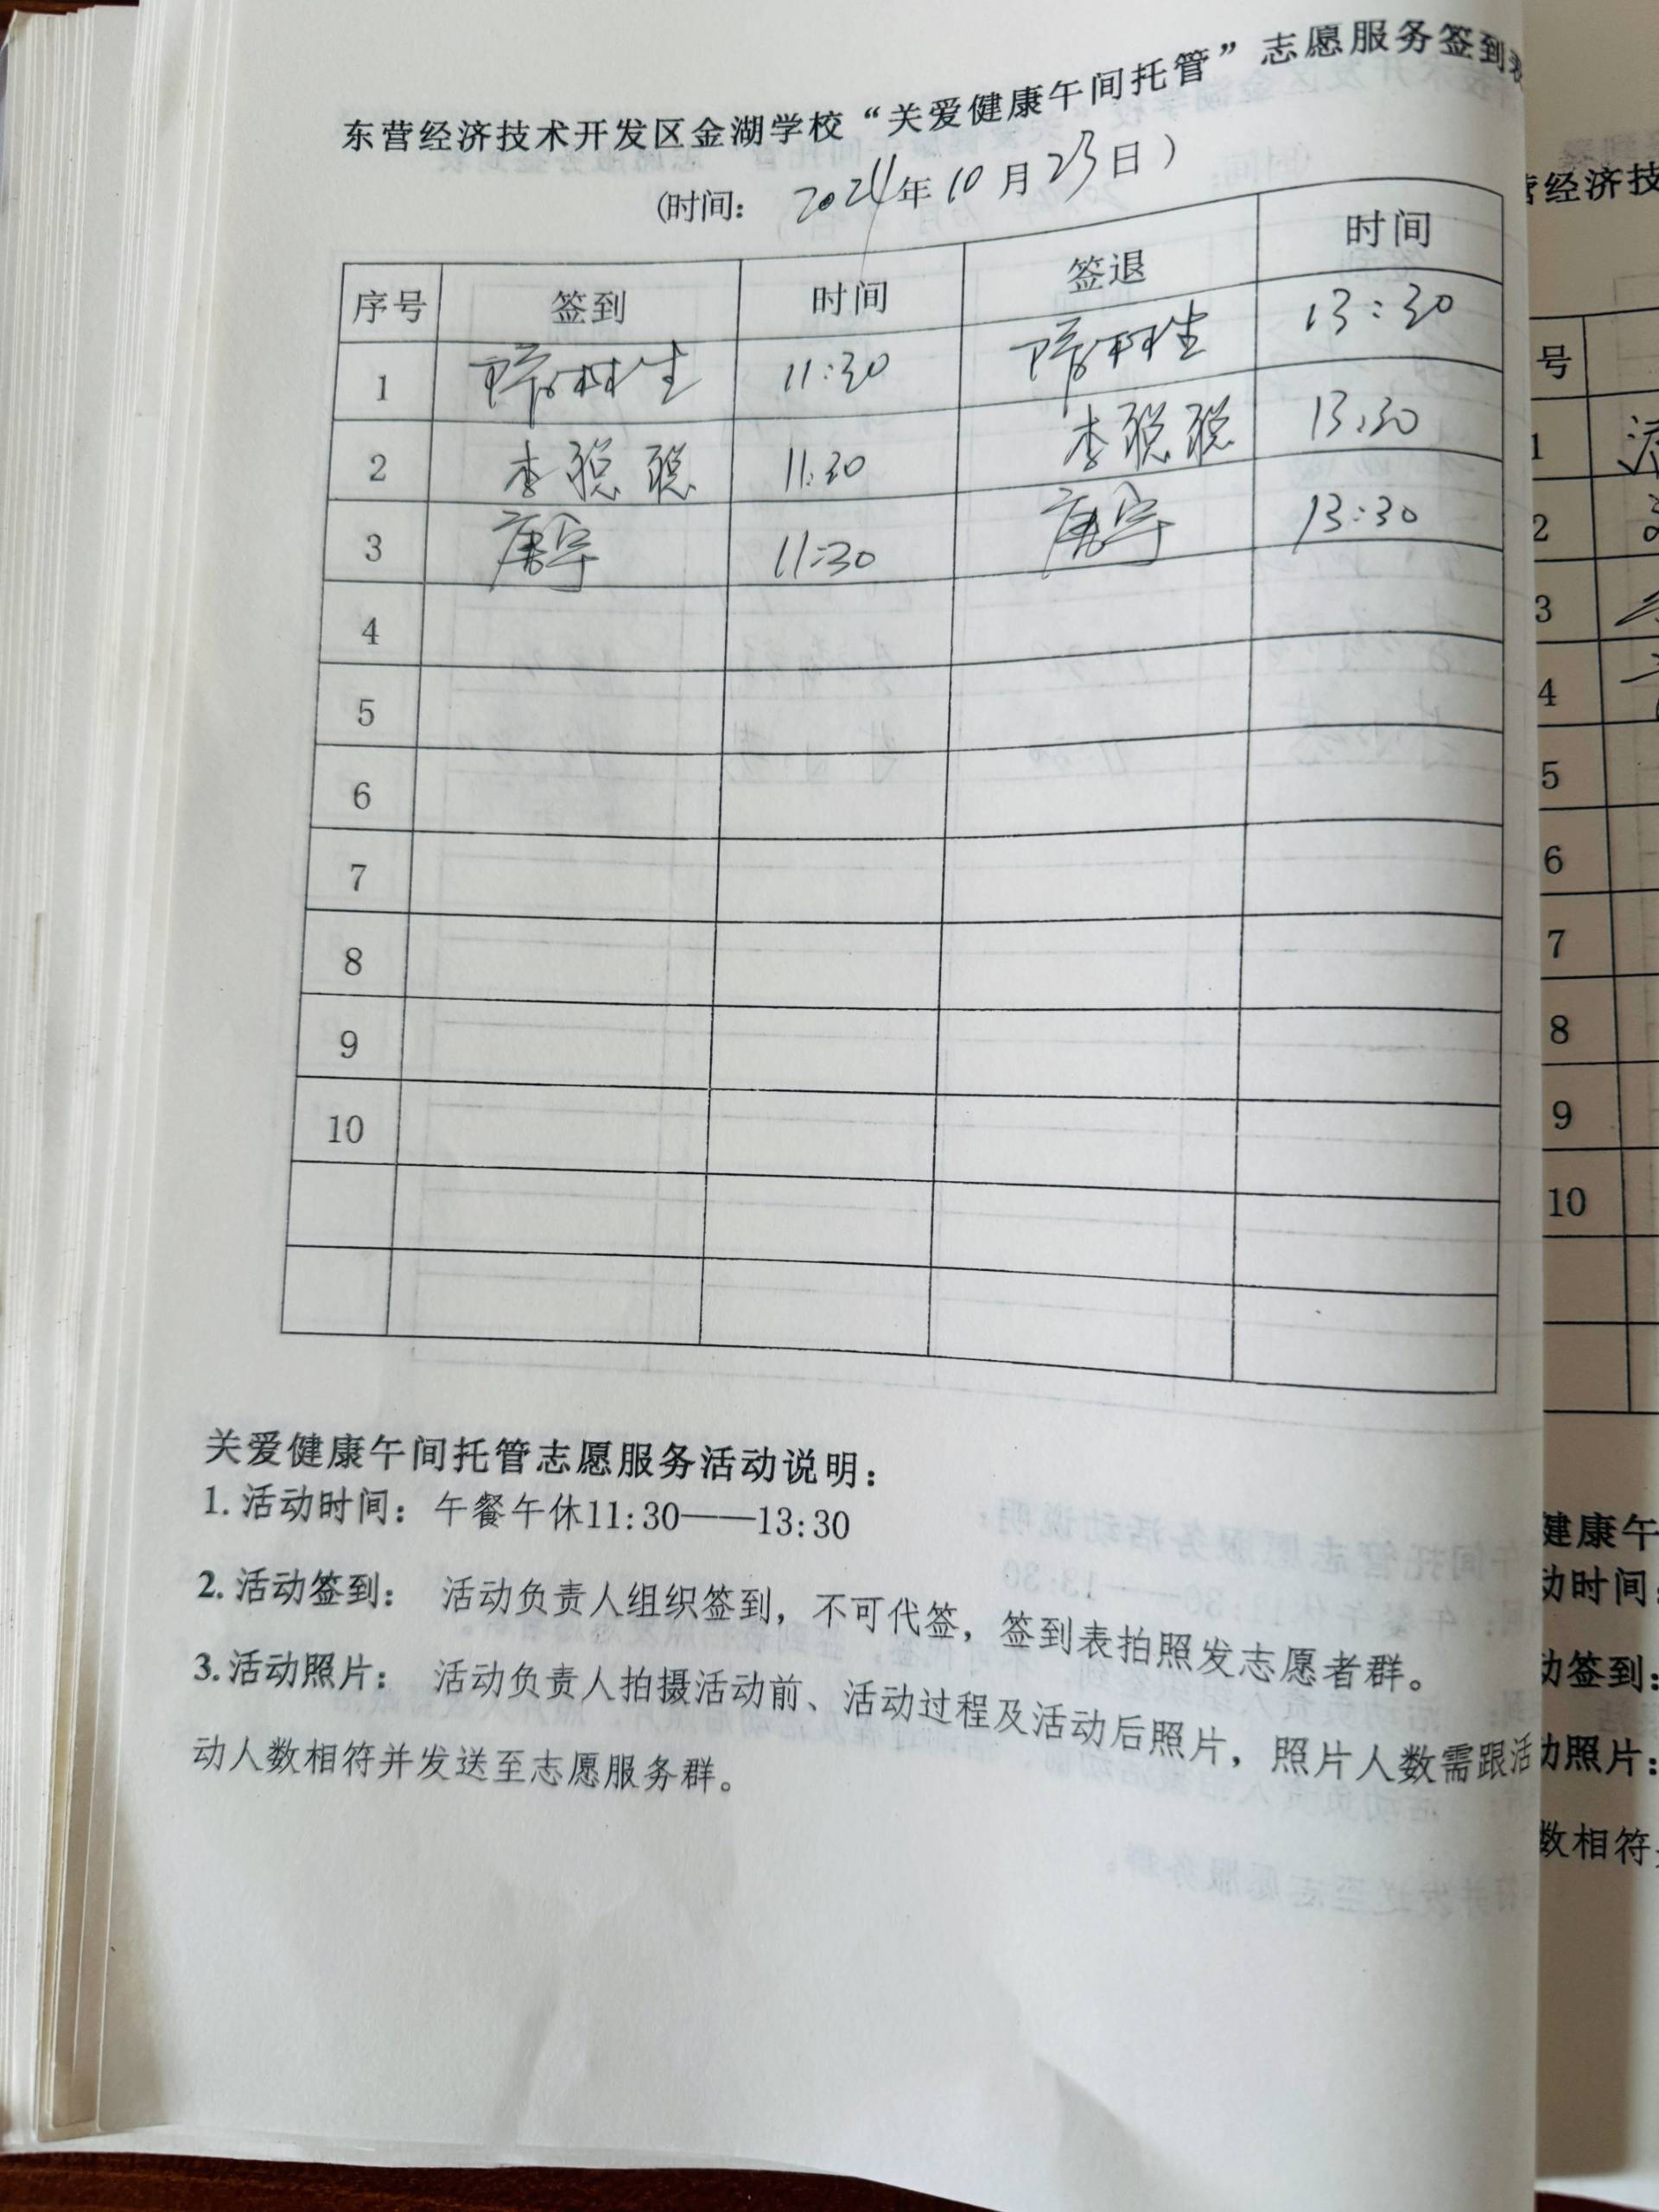 东营经济技术开发区金湖学校“关爱健康午间托管”志愿服务签到表
(时间： 2024年10月23日）
序号 签到 时间 签退 时间
1 11:30 13:30
2 李聪聪 11:30 李聪聪 13:30
3 唐宇 11:30 唐宇 13:30
4
5
6
7
8
9
10
关爱健康午间托管志愿服务活动说明：
1. 活动时间： 午餐午休11:30——13:30
2. 活动签到： 活动负责人组织签到，不可代签，签到表拍照发志愿者群。
3. 活动照片： 活动负责人拍摄活动前、活动过程及活动后照片，照片人数需跟活
动人数相符并发送至志愿服务群。
营经济技
号
1
2
3
4
5
6
7
8
9
10
健康午
动时间：
动签到：
力照片：
数相符